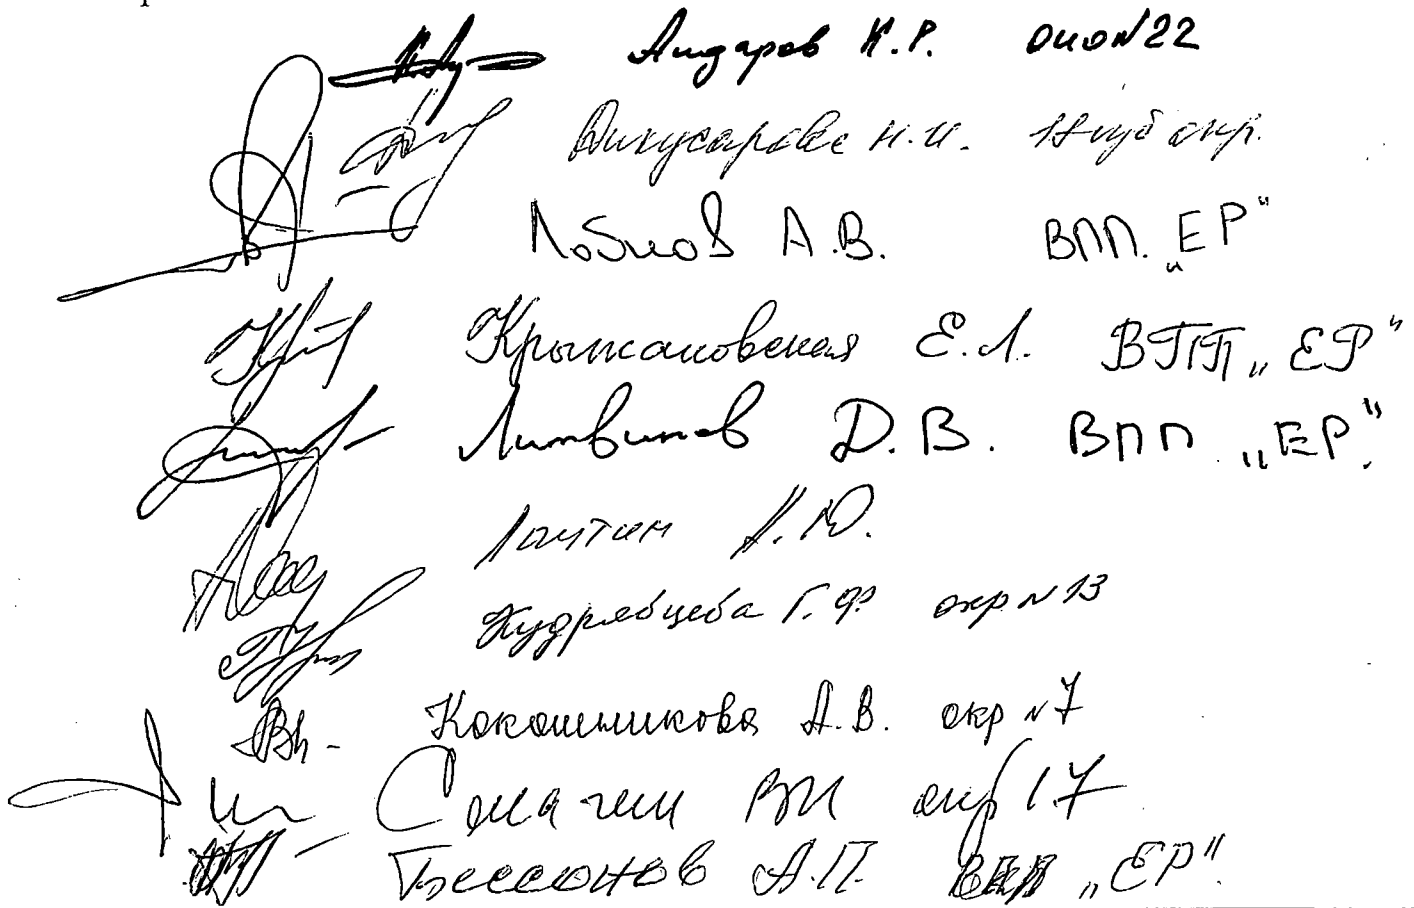 Айдаров К.Р. окр N22
Н.И. окр.
Лобков А.В. ВПП. „ЕР"
Крыжановская Е.Л. ВПП „ЕР"
Литвинов Д.В. ВПП „ЕР"
Лаптин А.Ю.
Кудрявцева Г.Ф окр N 13
Кокошникова А.В. окр N 7
Смагин ВИ окр 17
Бессонов А.П. „ЕР"